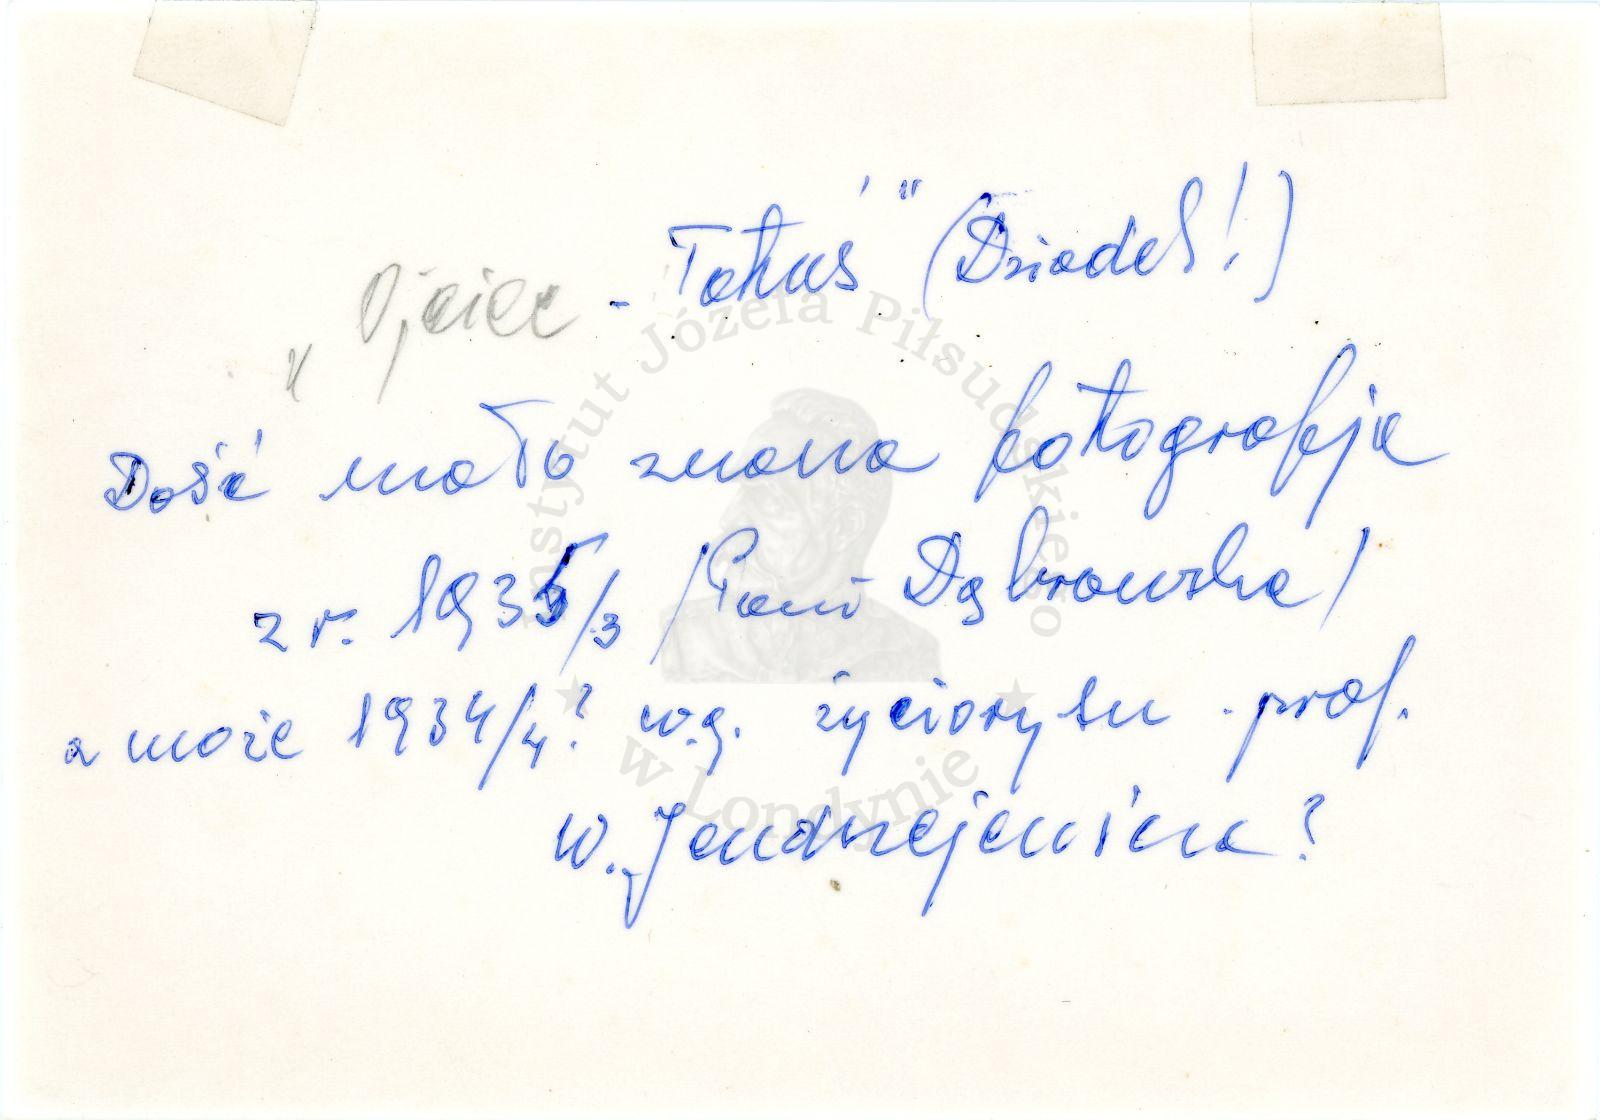 „Ojciec - Tatuś" (Dziadek!)
Dość mało znana fotografja
z r. 1935/3 /Pani Dąbrowska/
a może 1934/4? w.g. życiorysu prof.
W. Jendrzejewicza?
Instytut Józefa Piłsudskiego
w Londynie